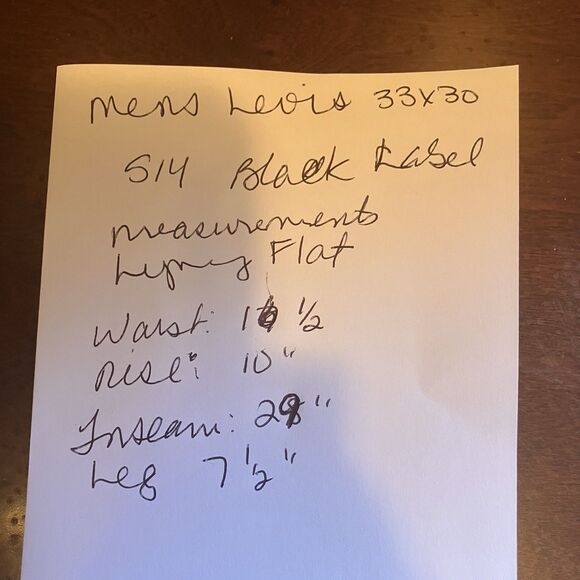 mens Levis 33x30
514 Black Label
measurements
Lying Flat
Waist: 16 1/2
Rise: 10"
Inseam: 29"
Leg 7 1/2"